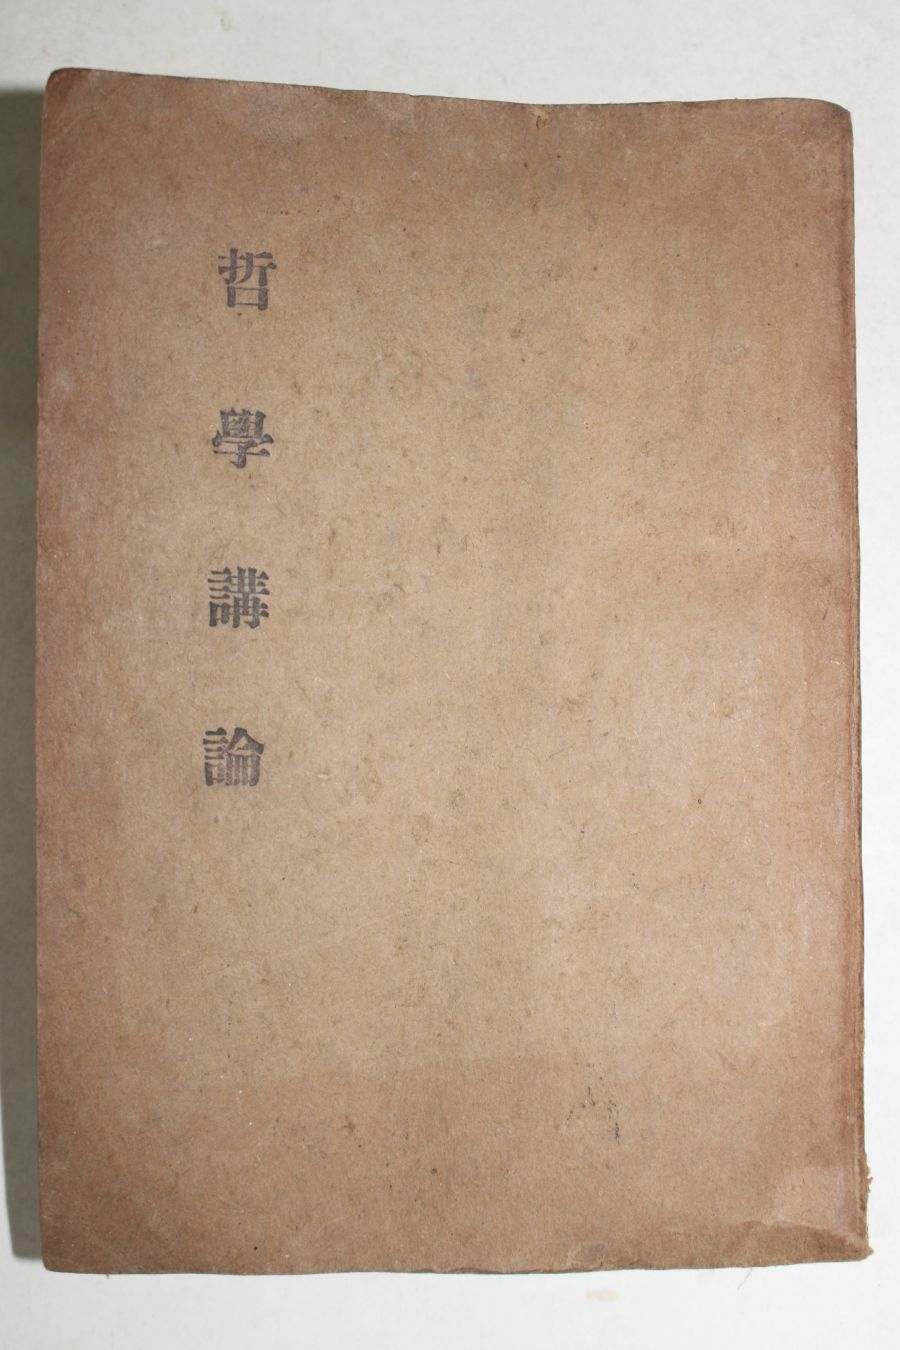 哲學講論